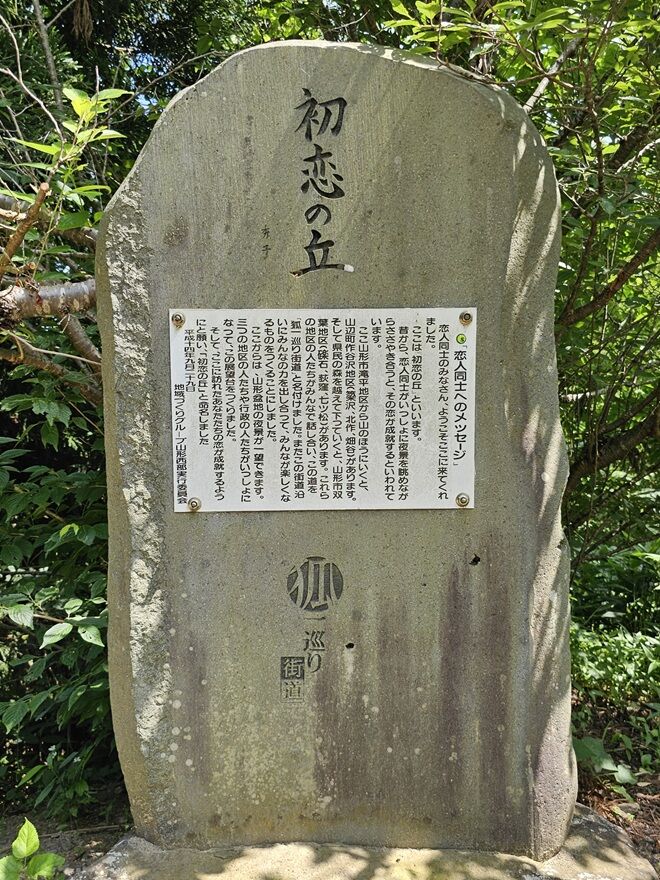 初恋の丘
「恋人同士へのメッセージ」
恋人同士のみなさん、ようこそここに来てくれ
ました。
ここは「初恋の丘」といいます。
昔から、恋人同士がいっしょに夜景を眺めなが
らささやき合うと、その恋が成就するといわれて
います。
ここ山形市滝平地区から山のほうにいくと、
山辺町作谷沢地区(簗沢、北作、畑谷)があります。
そして県民の森を越えて下っていくと、山形市双
葉地区(礫石、萩窪、七ツ松)があります。これら
の地区の人たちがみんなで話し合い、この道を
「狐一巡り街道」と名付けました。またこの街道沿
いにみんなの力を出し合って、みんなが楽しくな
るものをつくることにしました。
ここからは、山形盆地の夜景が一望できます。
三つの地区の人たちや行政の人たちがいっしょに
なって、この展望台をつくりました。
そして、ここに訪れたあなたたちの恋が成就するよう
にと願い、「初恋の丘」と命名しました
平成十四年九月二十九日
地域づくりグループ山形西部実行委員会
狐
一巡り
街道